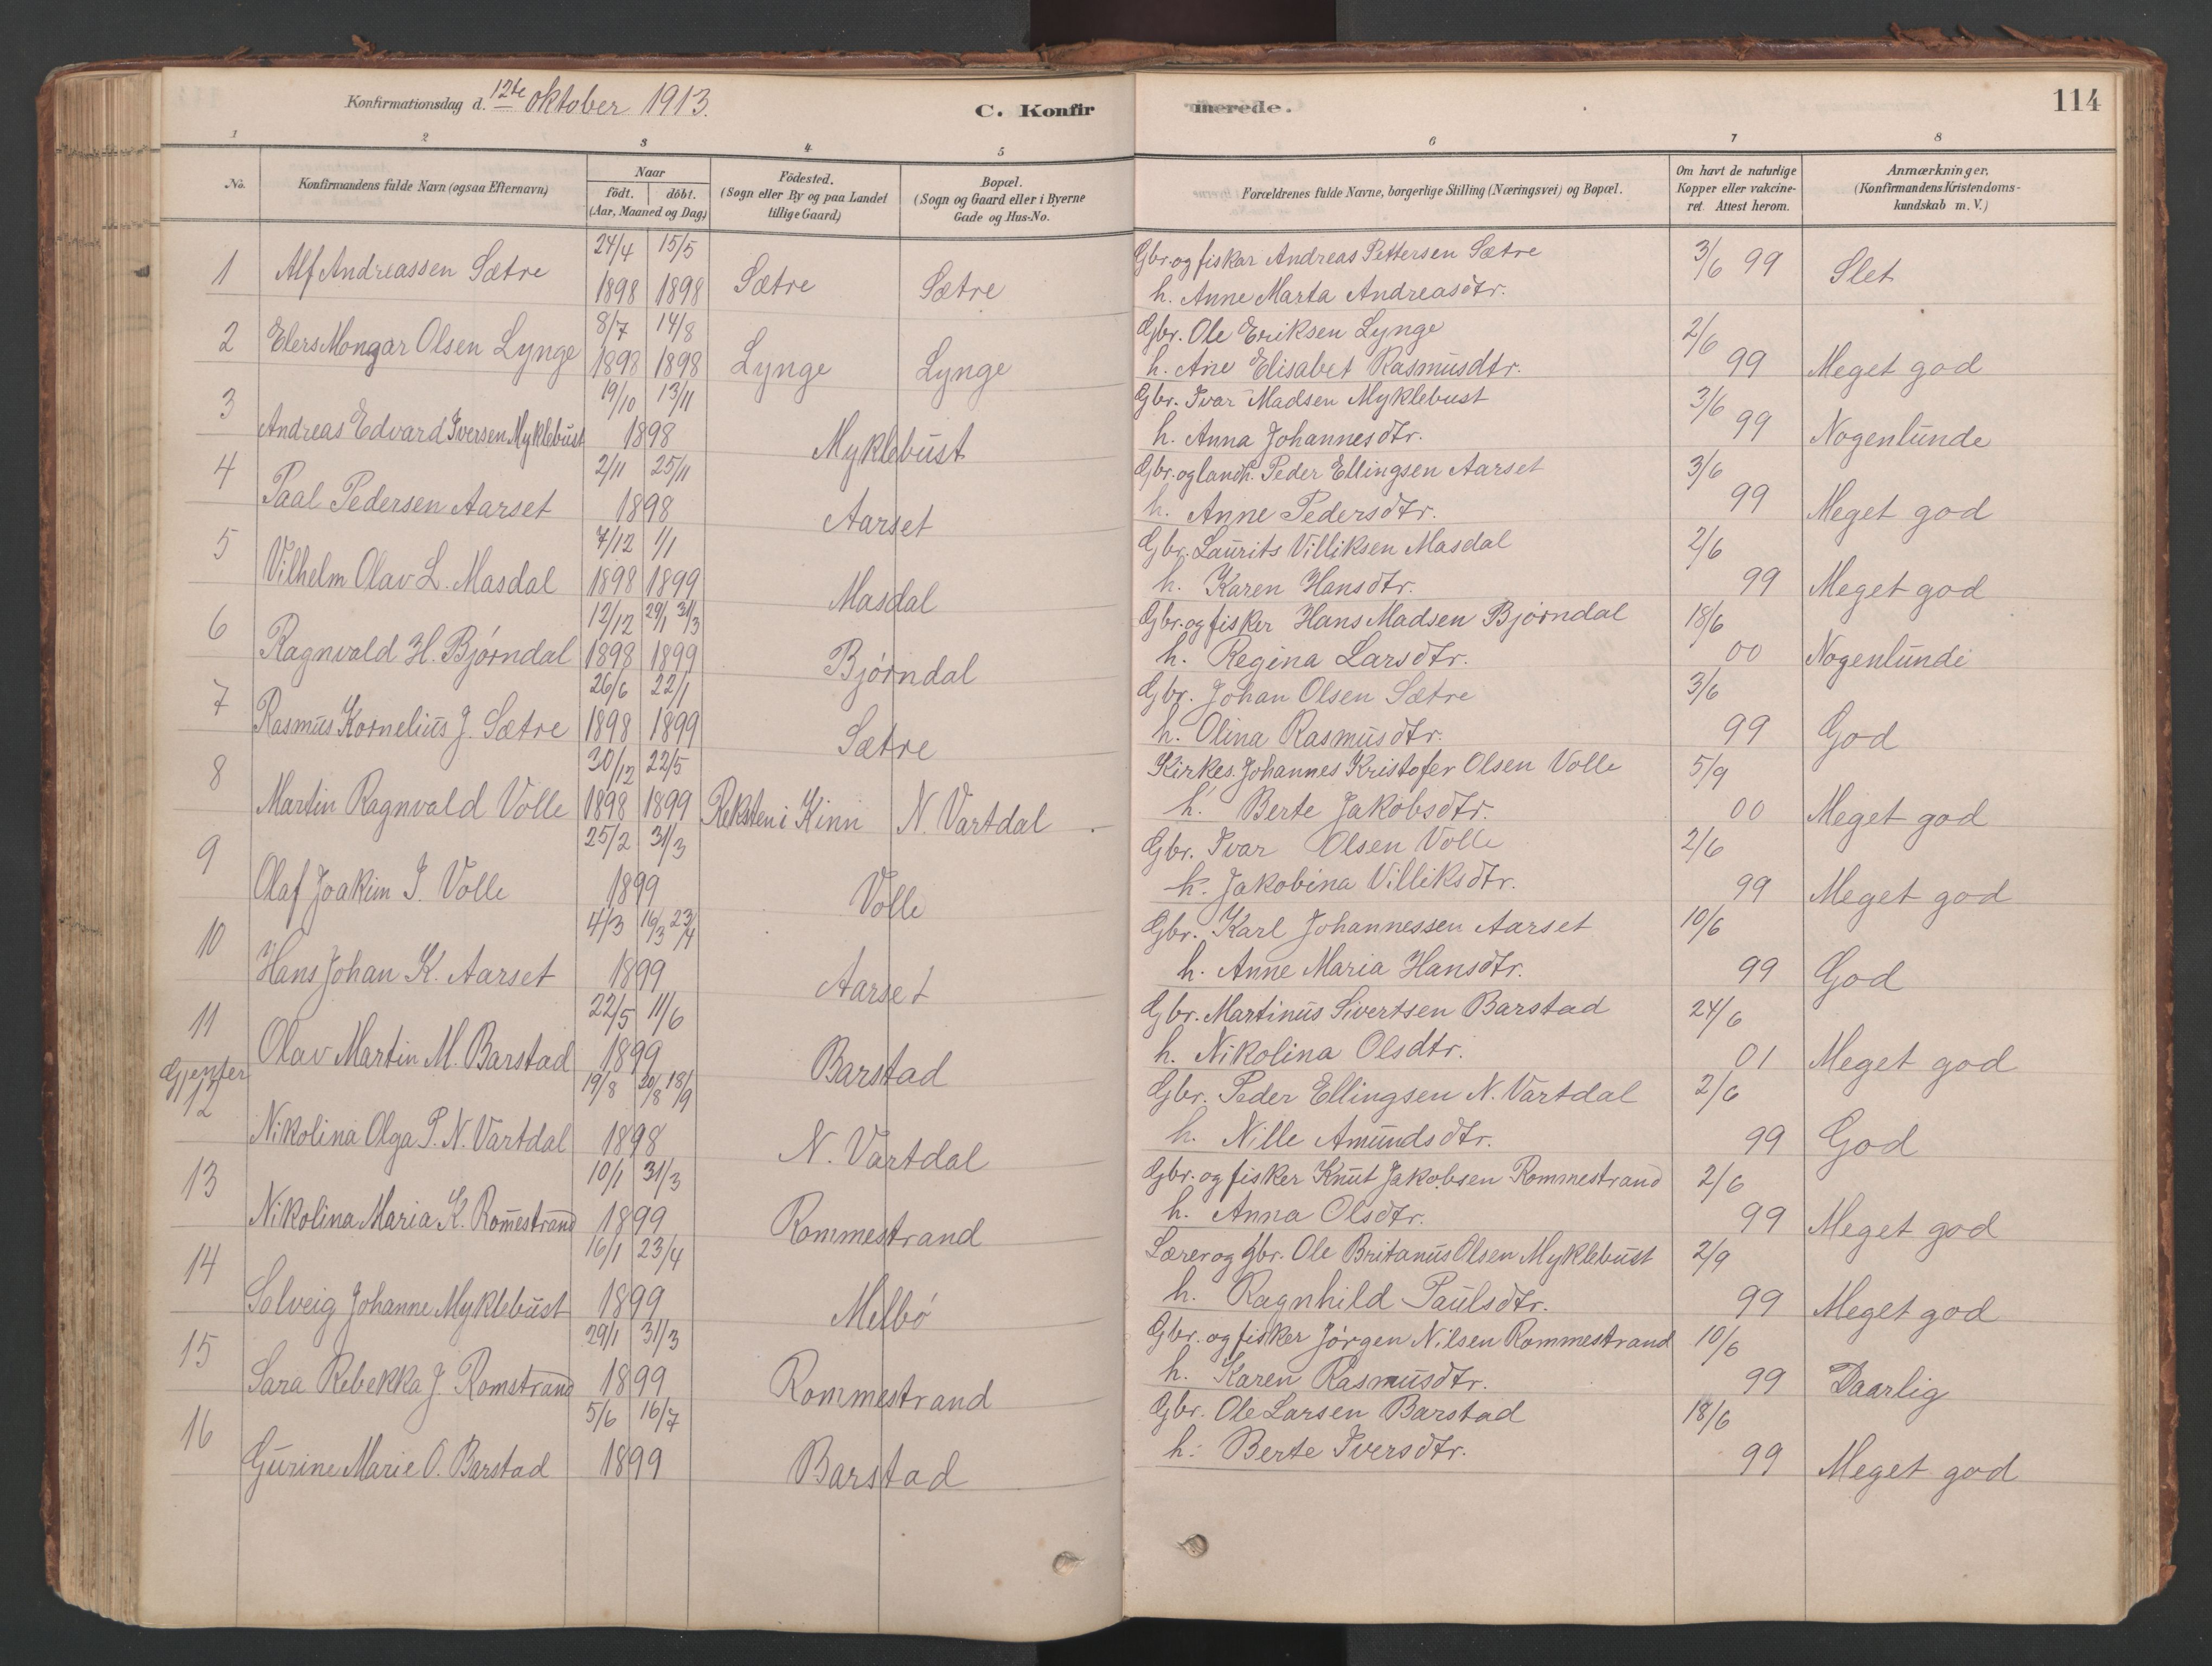 Konfirmationsdag d. 12te oktober 1913.
C. Konfirmerede.
114
1 2 3 4 5 6 7 8
No.
Konfirmandens fulde Navn (ogsaa Efternavn)
Naar
födt. döbt.
(Aar, Maaned og Dag)
Födested.
(Sogn eller By og paa Landet
tillige Gaard)
Bopæl.
(Sogn og Gaard eller i Byerne
Gade og Hus-No.
Forældrenes fulde Navne, borgerlige Stilling (Næringsvei) og Bopæl.
Om havt de naturlige
Kopper eller vakcine-
ret. Attest herom.
Anmærkninger.
(Konfirmandens Kristendoms-
kundskab m. V.)
24/4 15/5 Gbr. og fisker Andreas Pettersen Sætre 3/6
1 Alf Andreassen Sætre 1898 1898 Sætre Sætre h. Anne Marta Andreasdtr. 99 Slet
8/7 14/8 Gbr. Ole Eriksen Lynge 2/6
2 Elers Mongar Olsen Lynge 1898 1898 Lynge Lynge h. Ane Elisabet Rasmusdtr. 99 Meget god
19/10 13/11 Gbr. Ivar Madsen Myklebust 3/6
3 Andreas Edvard Iversen Myklebust 1898 Myklebust h. Anna Johannesdtr. 99 Nogenlunde
2/11 25/11 Gbr. og landh. Peder Ellingsen Aarset 3/6
4 Paal Pedersen Aarset 1898 Aarset h. Anne Pedersdtr. 99 Meget god
7/12 1/1 Gbr. Laurits Villiksen Masdal 2/6
5 Vilhelm Olav L. Masdal 1898 1899 Masdal h. Karen Hansdtr. 99 Meget god
12/12 29/1 31/3 Gbr. og fisker Hans Madsen Bjørndal 18/6
6 Ragnvald H. Bjørndal 1898 1899 Bjørndal h. Regina Larsdtr. 00 Nogenlunde
26/6 22/1 Gbr. Johan Olsen Sætre 3/6
7 Rasmus Kornelius J. Sætre 1898 1899 Sætre h. Olina Rasmusdtr. 99 God
30/12 22/5 Kirkes. Johannes Kristofer Olsen Volle 5/9
8 Martin Ragnvald Volle 1898 1899 Reksten i Kinn N. Vartdal h. Berte Jakobsdtr. 00 Meget god
25/2 31/3 Gbr. Ivar Olsen Volle 2/6
9 Olaf Joakim I. Volle 1899 Volle h. Jakobina Villiksdtr. 99 Meget god
4/3 16/3 23/4 Gbr. Karl Johannessen Aarset 10/6
10 Hans Johan K. Aarset 1899 Aarset h. Anne Maria Hansdtr. 99 God
22/5 11/6 Gbr. Martinus Sivertsen Barstad 24/6
11 Olav Martin M. Barstad 1899 Barstad h. Nikolina Olsdtr. 01 Meget god
Gjenter 19/8 20/8 18/9 Gbr. Peder Ellingsen N. Vartdal 2/6
12 Nikolina Olga P. N. Vartdal 1898 N. Vartdal h. Nille Amundsdtr. 99 God
10/1 31/3 Gbr. og fisker Knut Jakobsen Rommestrand 2/6
13 Nikolina Maria K. Romestrand 1899 Rommestrand h. Anna Olsdtr. 99 Meget god
16/1 23/4 Lærer og Gbr. Ole Britanus Olsen Myklebust 2/9
14 Solveig Johanne Myklebust 1899 Melbø h. Ragnhild Paulsdtr. 99 Meget god
29/1 31/3 Gbr. og fisker Jørgen Nilsen Rommestrand 10/6
15 Sara Rebekka J. Romstrand 1899 Rommestrand h. Karen Rasmusdtr. 99 Daarlig
5/6 16/7 Gbr. Ole Larsen Barstad 18/6
16 Gurine Marie O. Barstad 1899 Barstad h. Berte Iversdtr. 99 Meget god